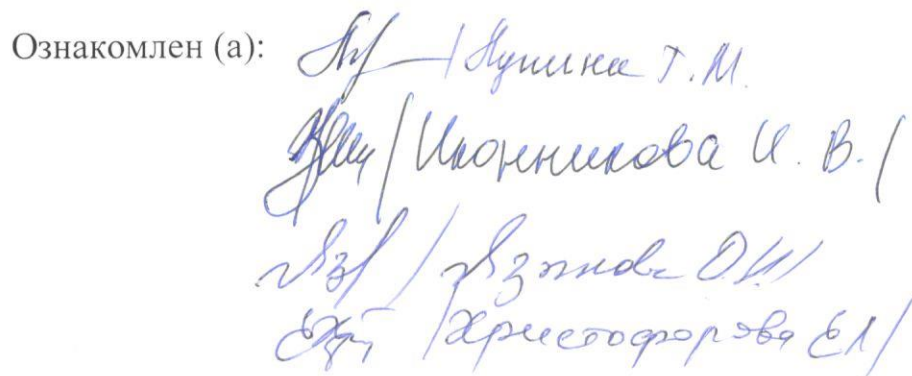 Ознакомлен (а): / Пупина Т. М.
/ Иконникова И. В. /
/ Язынова О.И /
/ Христофорова ЕЛ /